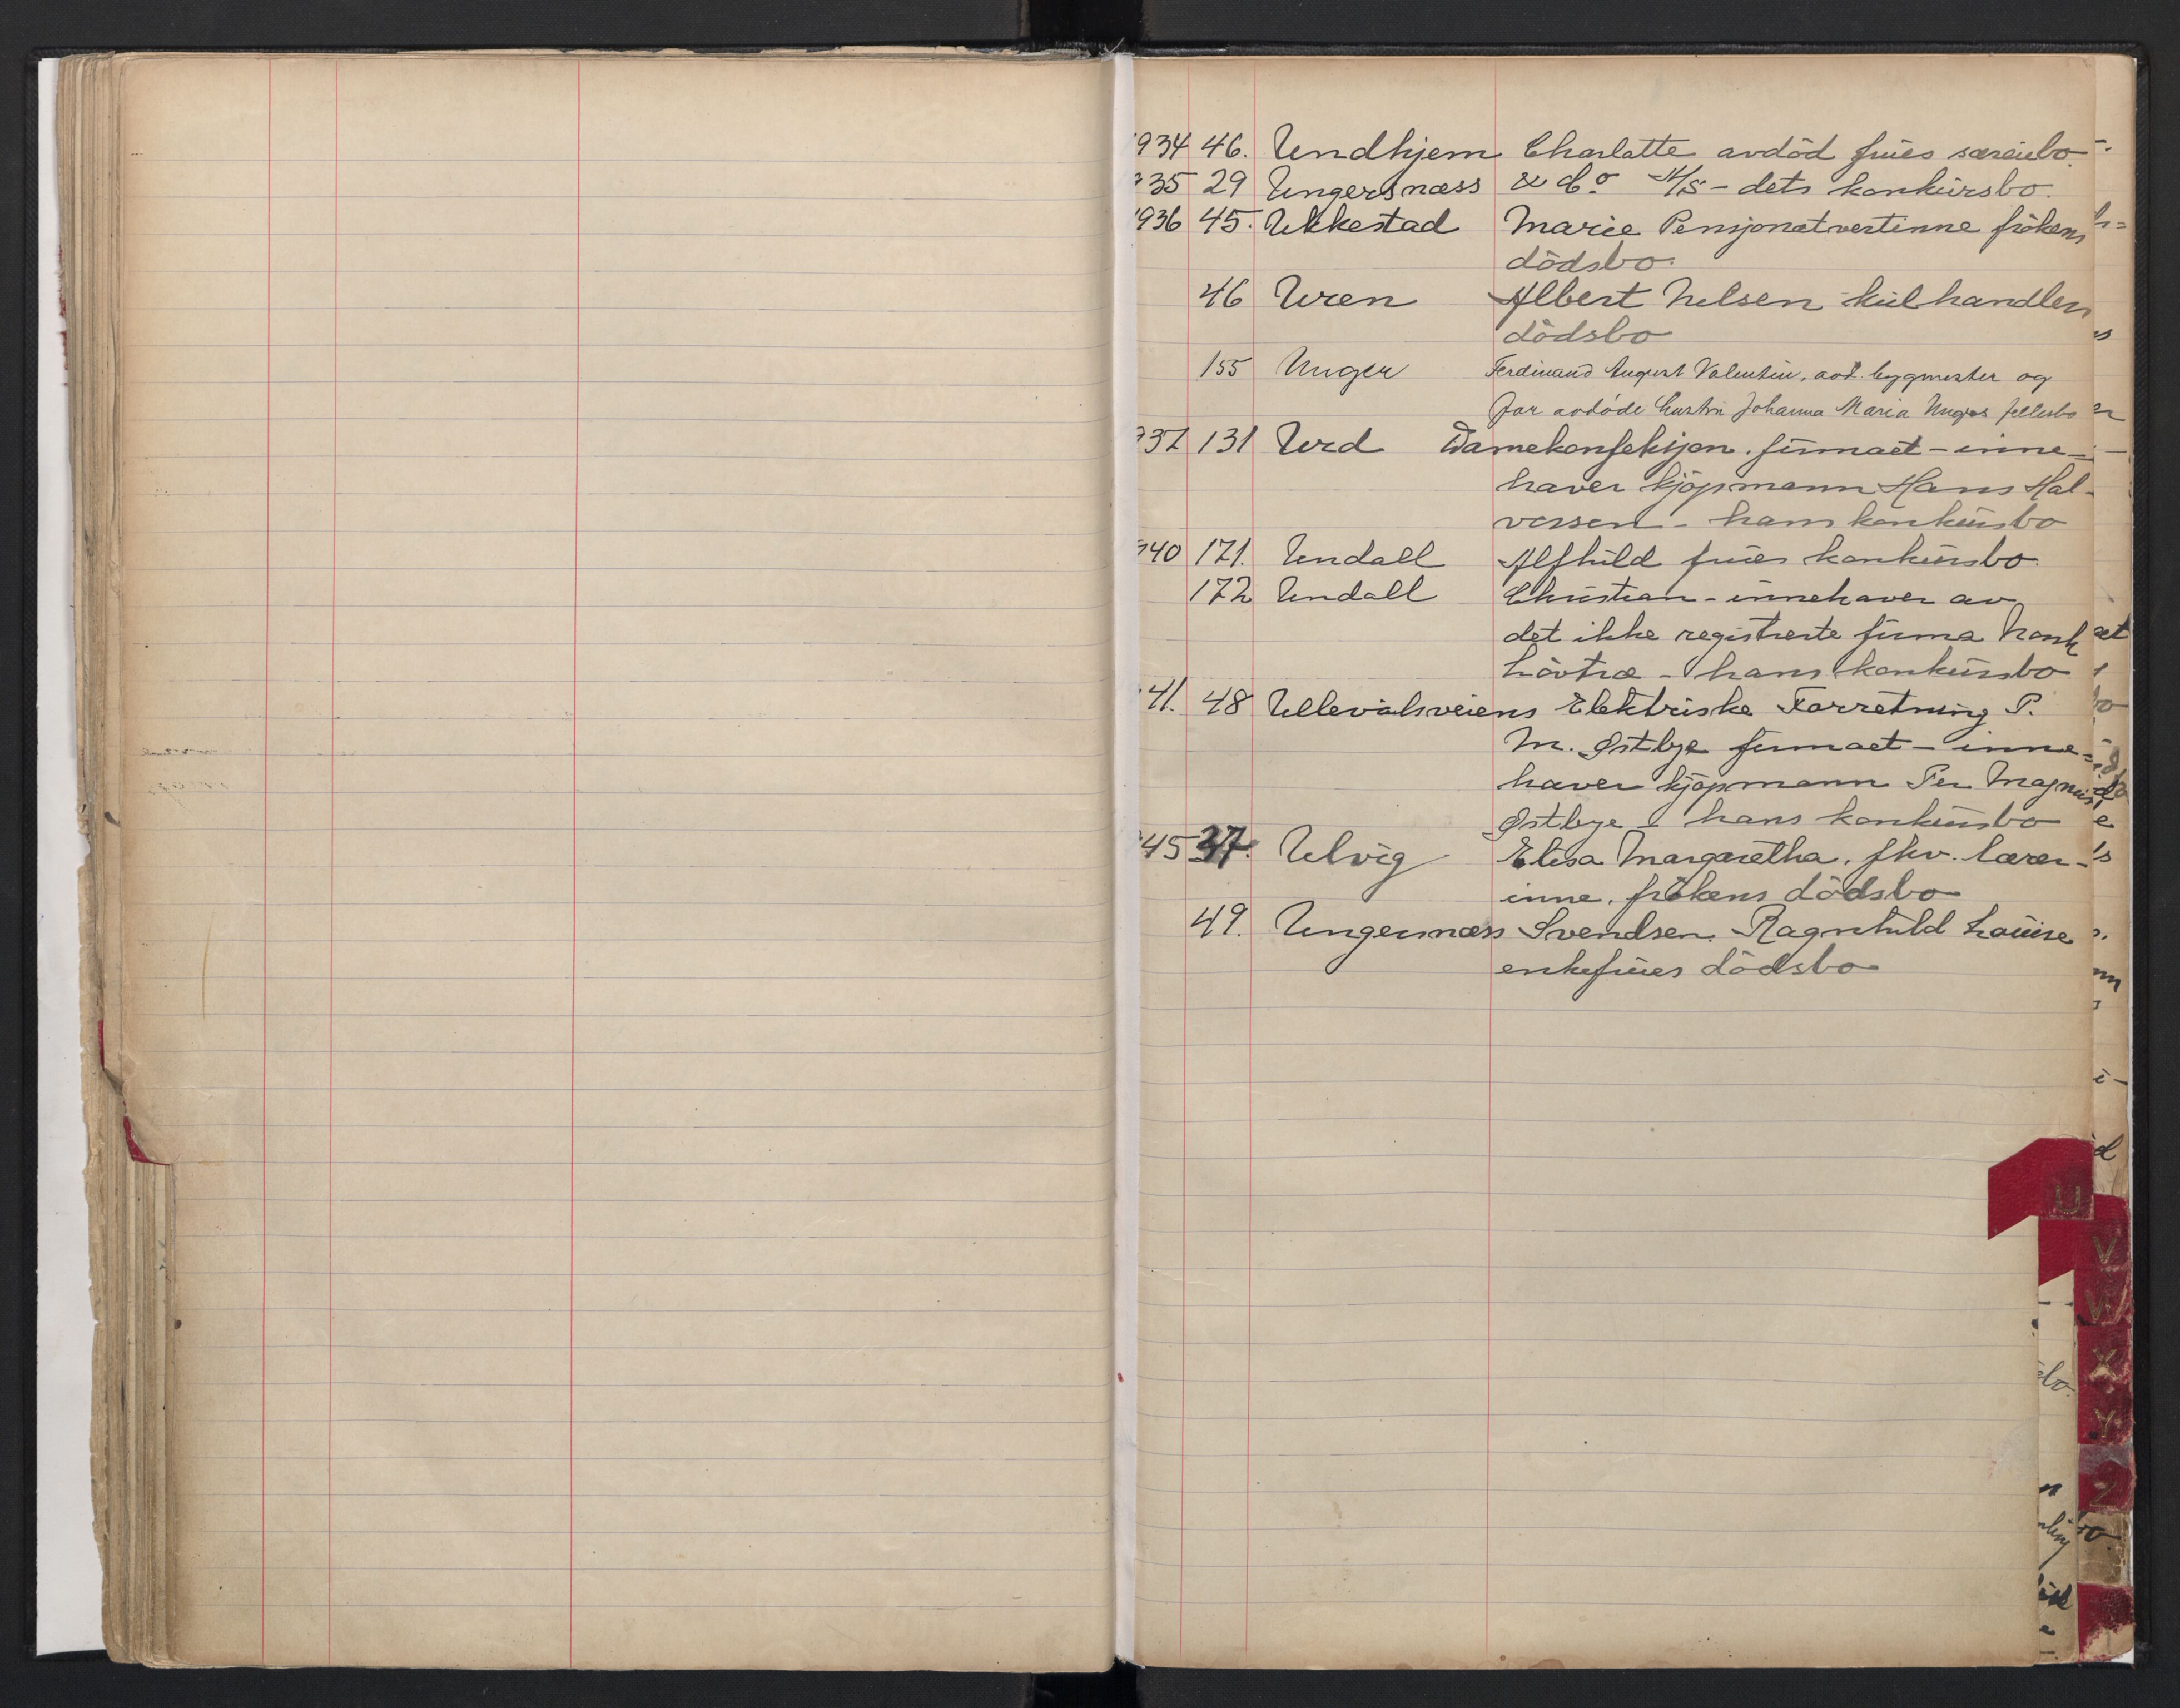 1934 46. Undhjem Charlotte avdød frues særeiebo.
935 29 Ungersnæss & Co A/S - dets konkursbo.
1936 45. Ukkestad Marie Pensjonatvertinne frøkens
dødsbo.
46 Uren Albert Nelsen kulhandlers
dødsbo
155 Unger Ferdinand August Valentin, avd. bygmester og
før avdøde hustru Johanna Maria Ungers fellesbo
937 131 Urd Damekonfeksjon. firmaet - inne-
haver kjøpmann Hans Hal-
vorsen - hans konkursbo
940 171. Undall Alfhild frues konkursbo
172 Undall Christian - innehaver av
det ikke registrerte firma Norsk
- hans konkursbo
41. 48 Ullevålsveiens Elektriske Forretning P.
M. Østbye firmaet - inne-
haver kjøpmann Per Magnus
Østbye - hans konkursbo
45 37. Ulvig Elisa Margaretha, fhv. lærer-
inne, frøkens dødsbo
49. Ungersnæss Svendsen Ragnhild Louise
enkefrues dødsbo
U
V
W
X
Y
Z